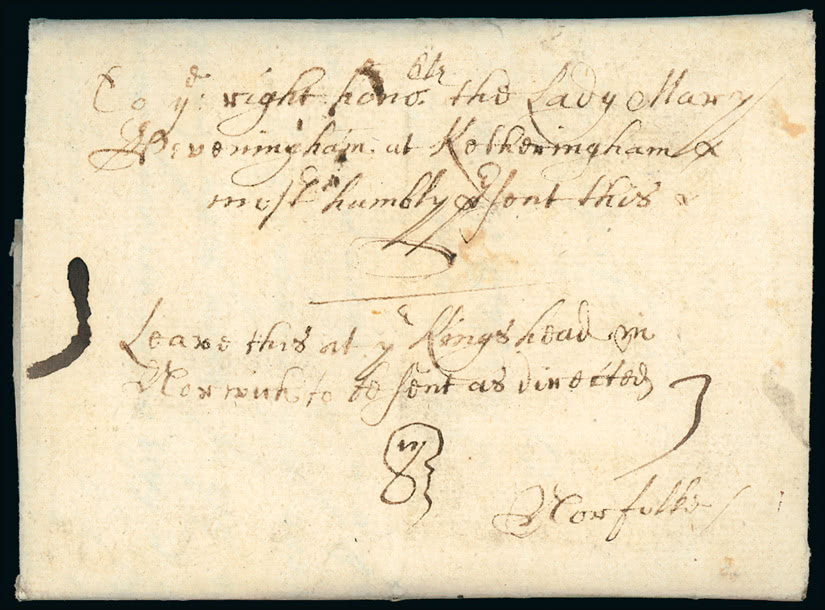 To yͤ right honoᵇˡᵉ the Lady Mary
Heveningham at Ketheringham &
most humbly psent this
Leave this at yͤ Kings head in
Norwich to be sent as directed
Norfolke